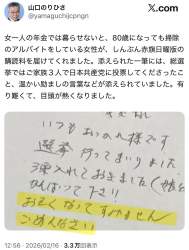 山口のりひさ
@yamaguchijcpngn
女一人の年金では暮らせないと、80歳になっても掃除
のアルバイトをしている女性が、しんぶん赤旗日曜版の
購読料を届けてくれました。添えられた一筆には、総選
挙ではご家族3人で日本共産党に投票してくださったこ
と、温かい励ましの言葉などが添えられていました。有
り難くて、目頭が熱くなりました。
いつもおつかれ様です
選挙 行ってまいりました
3票入れておきました(娘も
がんばって下さい!!
おそくなってすみません
ごめんなさい
12:56 · 2026/02/16 · 3.3万回表示